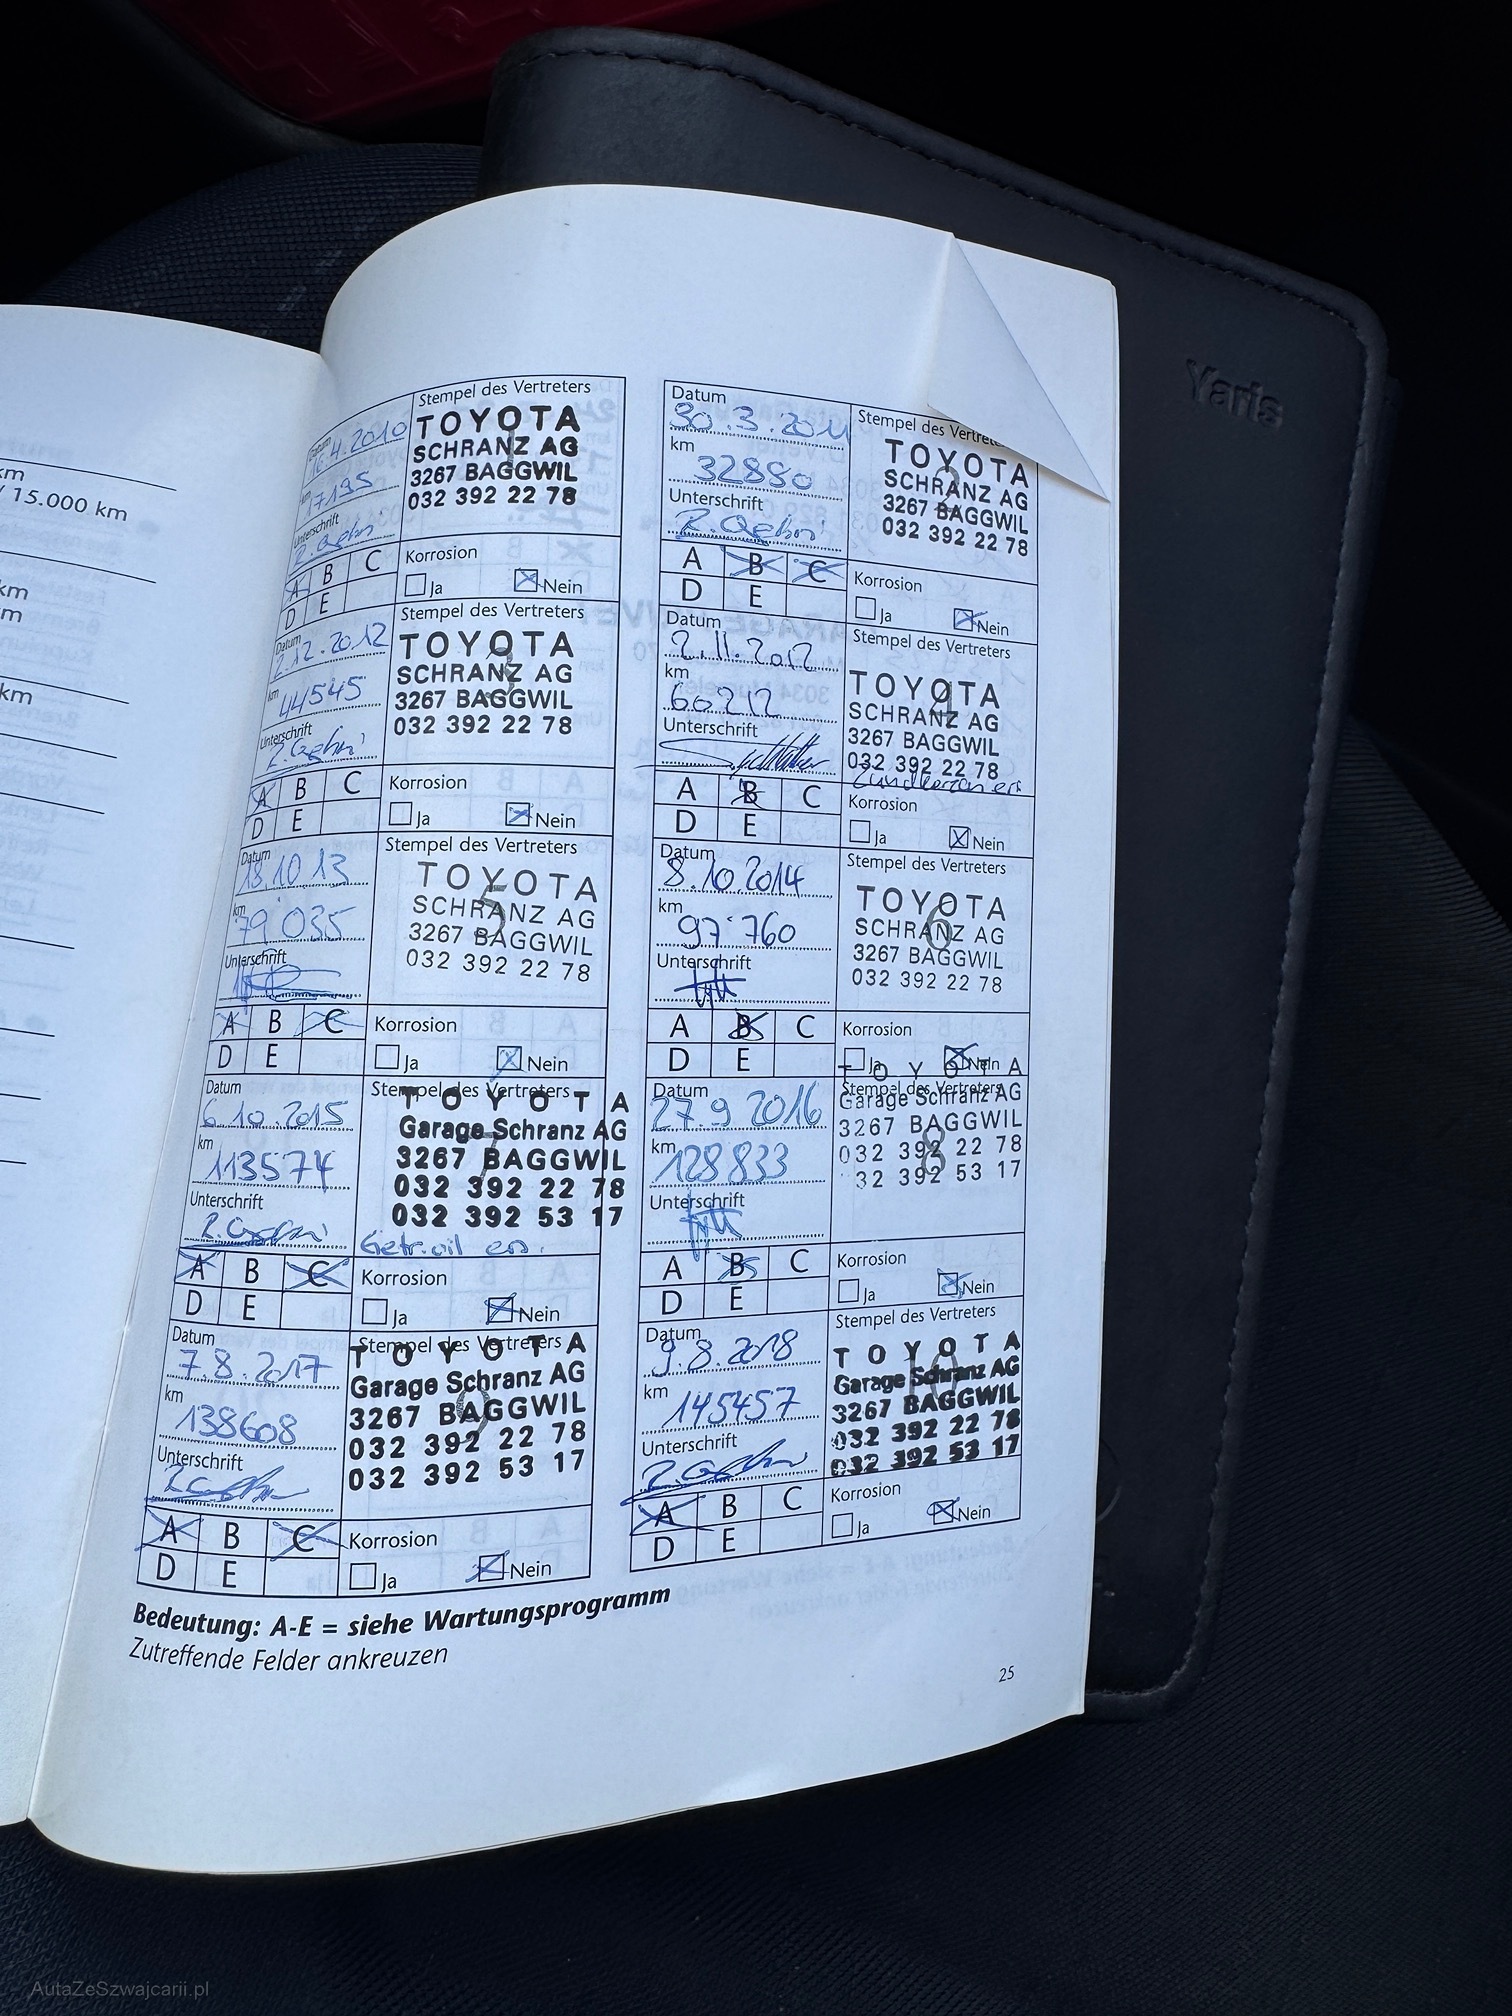 km
/ 15.000 km
km
m
km
Datum
16.4.2010
km
17195
Unterschrift
Stempel des Vertreters
TOYOTA
1
SCHRANZ AG
3267 BAGGWIL
032 392 22 78
A B C
D E
Korrosion
Ja Nein
Datum
30.3.2011
km
32880
Unterschrift
Stempel des Vertrete
TOYOTA
2
SCHRANZ AG
3267 BAGGWIL
032 392 22 78
A B C
D E
Korrosion
Ja Nein
Datum
2.12.2012
km
44545
Unterschrift
Stempel des Vertreters
TOYOTA
3
SCHRANZ AG
3267 BAGGWIL
032 392 22 78
A B C
D E
Korrosion
Ja Nein
Datum
2.11.2012
km
60212
Unterschrift
Stempel des Vertreters
TOYOTA
4
SCHRANZ AG
3267 BAGGWIL
032 392 22 78
A B C
D E
Korrosion
Ja Nein
Datum
13 10 13
km
79'035
Unterschrift
Stempel des Vertreters
TOYOTA
5
SCHRANZ AG
3267 BAGGWIL
032 392 22 78
A B C
D E
Korrosion
Ja Nein
Datum
8.10.2014
km
97'760
Unterschrift
Stempel des Vertreters
TOYOTA
6
SCHRANZ AG
3267 BAGGWIL
032 392 22 78
A B C
D E
Korrosion
Ja Nein
Datum
6.10.2015
km
113574
Unterschrift
Stempel des Vertreters
TOYOTA
7
Garage Schranz AG
3267 BAGGWIL
032 392 22 78
032 392 53 17
Getr.öil ers.
A B C
D E
Korrosion
Ja Nein
Datum
27.9 2016
km
128833
Unterschrift
Stempel des Vertreters
TOYOTA
Garage Schranz AG
3267 BAGGWIL
8
032 392 22 78
32 392 53 17
A B C
D E
Korrosion
Ja Nein
Datum
7.8.2017
km
138608
Unterschrift
Stempel des Vertreters
TOYOTA
Garage Schranz AG
9
3267 BAGGWIL
032 392 22 78
032 392 53 17
A B C
D E
Korrosion
Ja Nein
Datum
9.8.2018
km
145457
Unterschrift
Stempel des Vertreters
TOYOTA
10
Garage Schranz AG
3267 BAGGWIL
032 392 22 78
032 392 53 17
A B C
D E
Korrosion
Ja Nein
Bedeutung: A-E = siehe Wartungsprogramm
Zutreffende Felder ankreuzen
25
Yaris
AutaZeSzwajcarii.pl